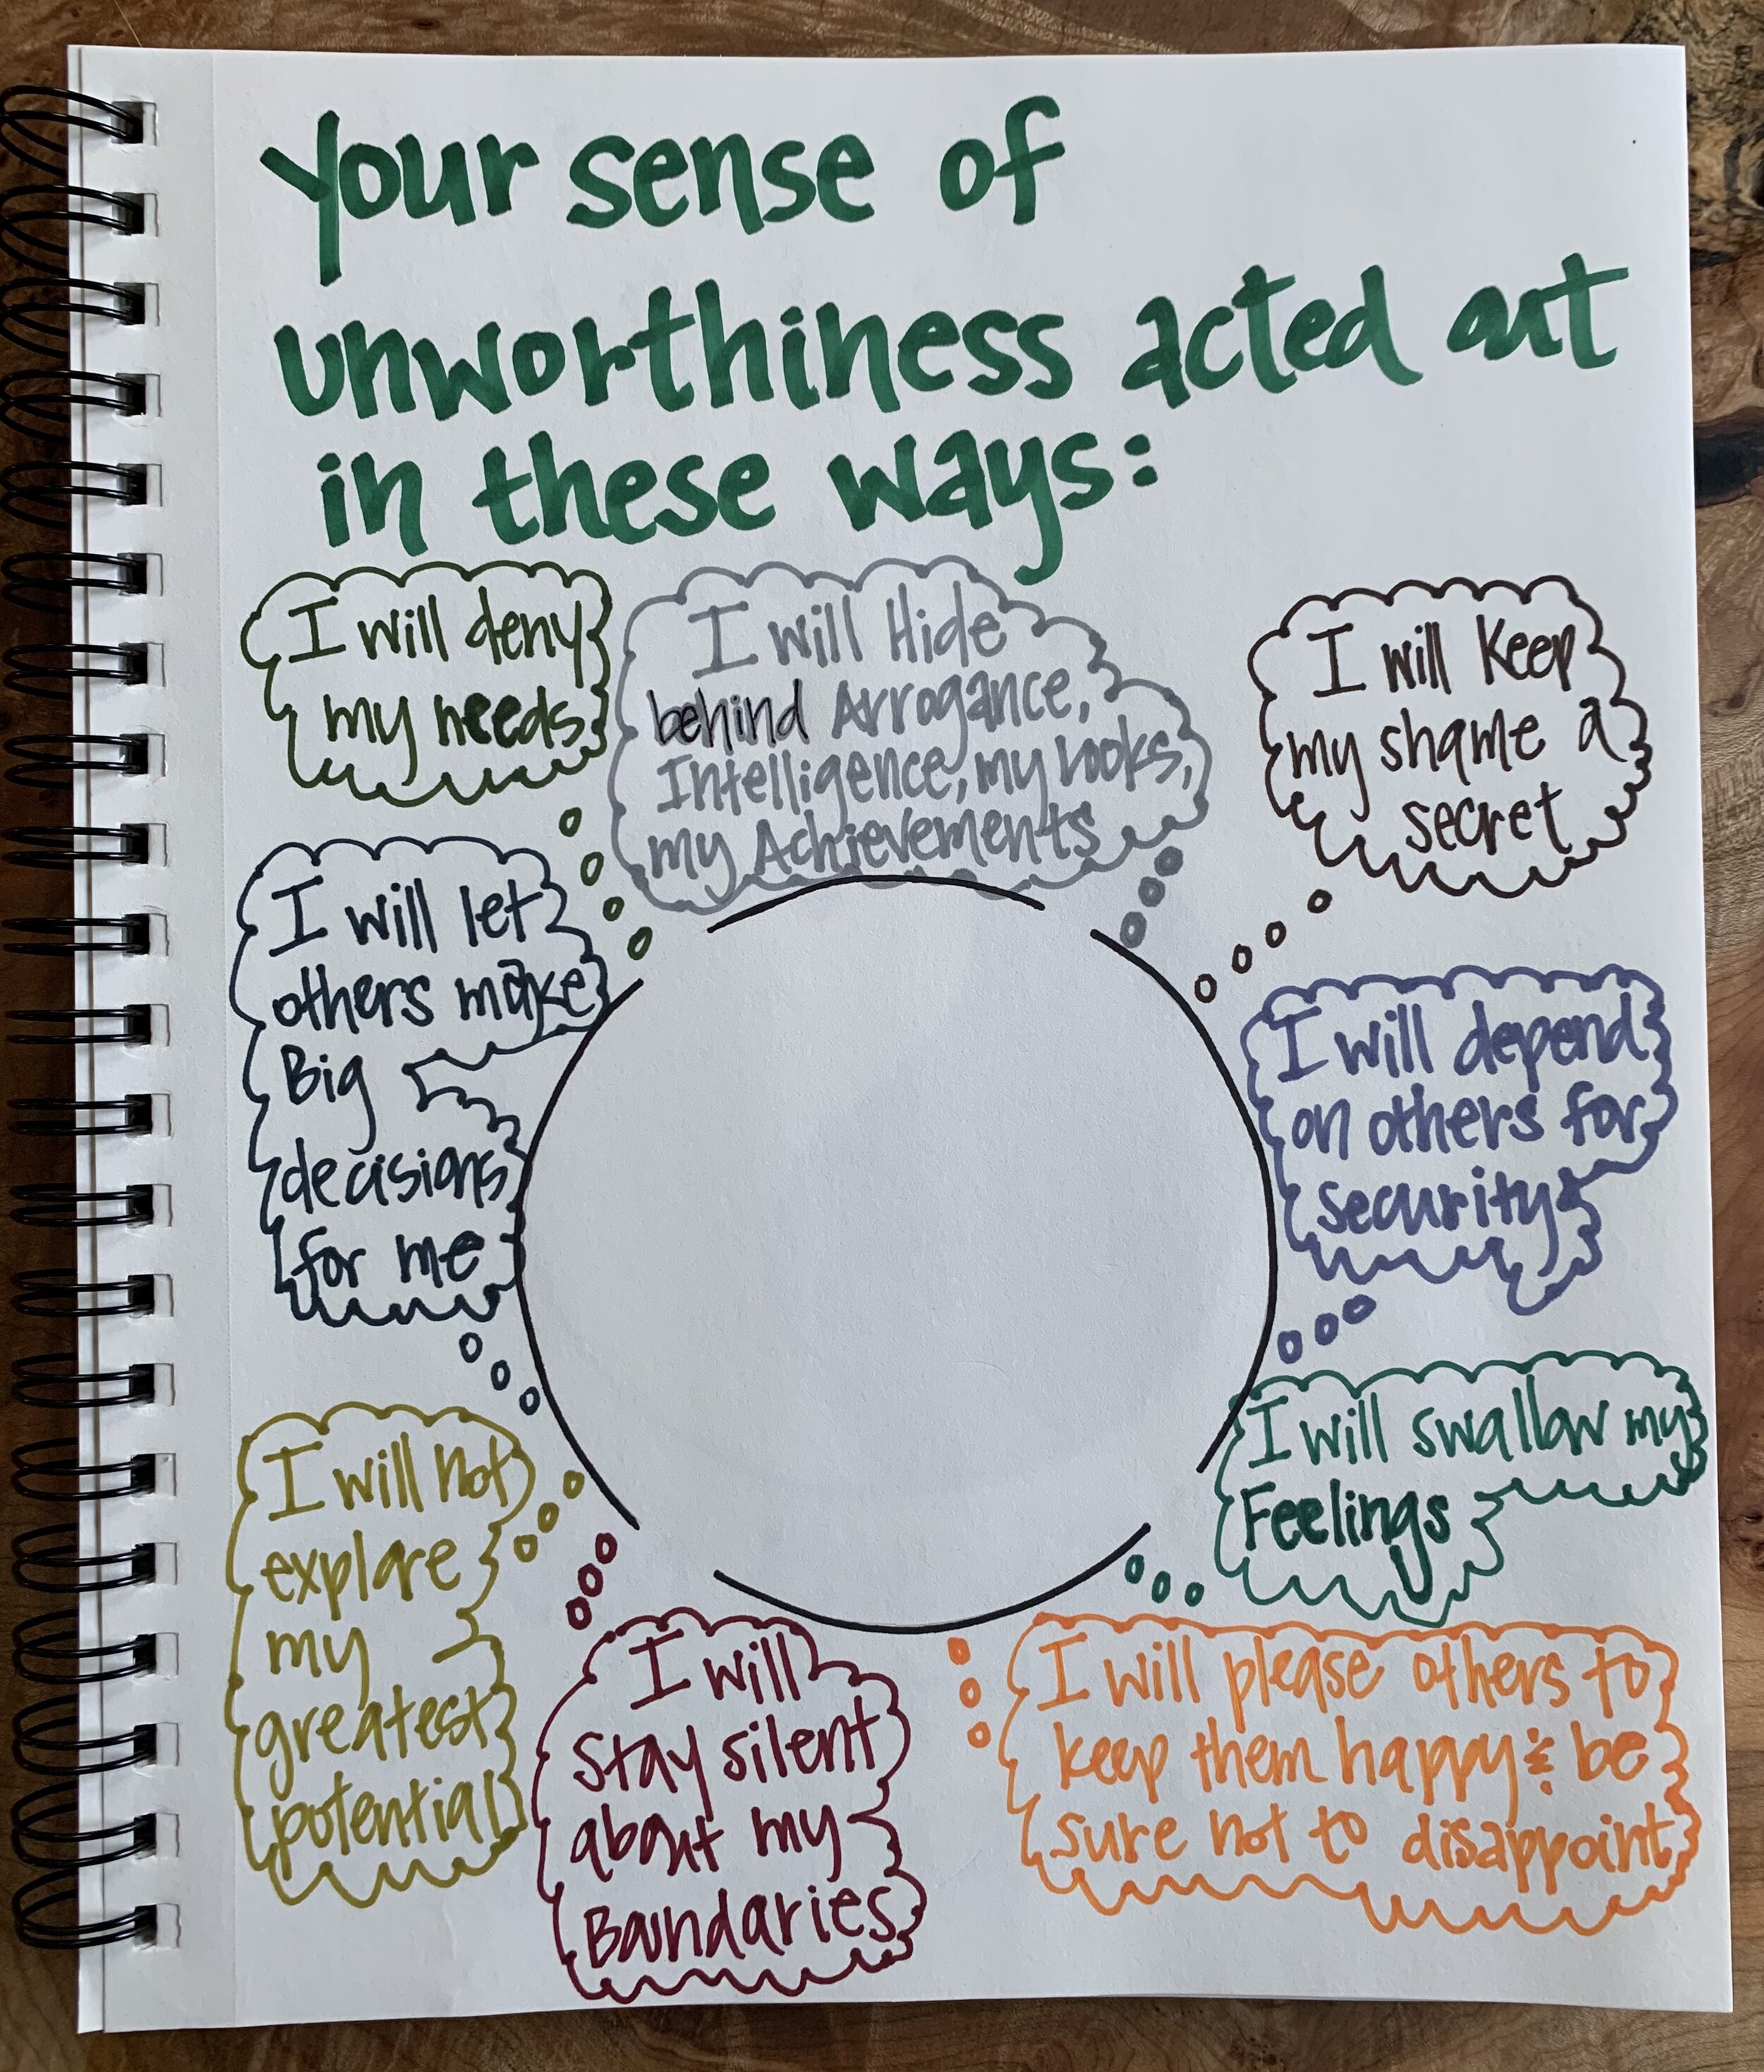 Your sense of
unworthiness acted out
in these ways:
I will deny
my needs
I will Hide
behind Arrogance,
Intelligence, my looks,
my Achievements
I will Keep
my shame a
secret
I will let
others make
Big
decisions
for me
I will depend
on others for
security
I will swallow my
Feelings
I will not
explore
my
greatest
potential
I will
stay silent
about my
Boundaries
I will please others to
keep them happy & be
sure not to disappoint